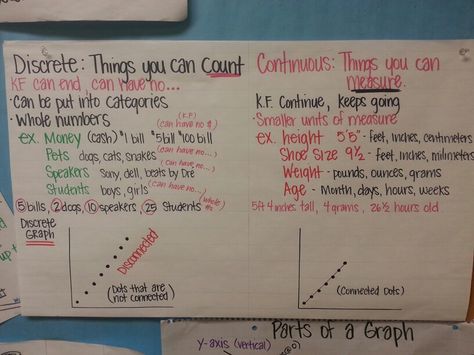 Discrete: Things you can count
KF can end, can have no...
· Can be put into categories
· Whole numbers (K.F.) (can have no $)
ex. Money (cash) $1 bill $5 bill $100 bill
Pets dogs, cats, snakes (can have no...)
Speakers Sony, dell, beats by Dre (can have no...)
Students boys, girls (can have no...)
5 bills, 2 dogs, 10 speakers, 25 students (whole #s)
Discrete Graph
Disconnected
(Dots that are not connected)
Continuous: Things you can measure.
K.F. Continue, keeps going
· Smaller units of measure
ex. height 5'5" - feet, inches, centimeters
Shoe Size 9½ - feet, inches, milimeters
Weight - pounds, ounces, grams
Age - Month, days, hours, weeks
5ft 4 inches tall, 4 grams, 26½ hours old
(Connected Dots)
Parts of a Graph
y-axis (vertical)